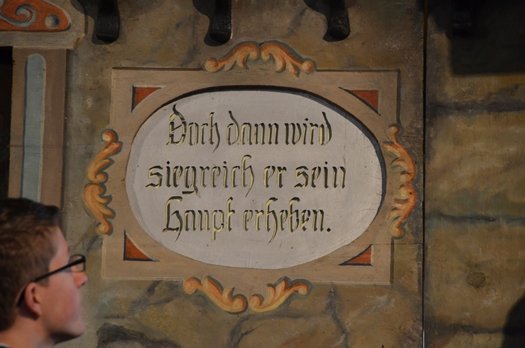 Doch dann wird
siegreich er sein
Haupt erheben.